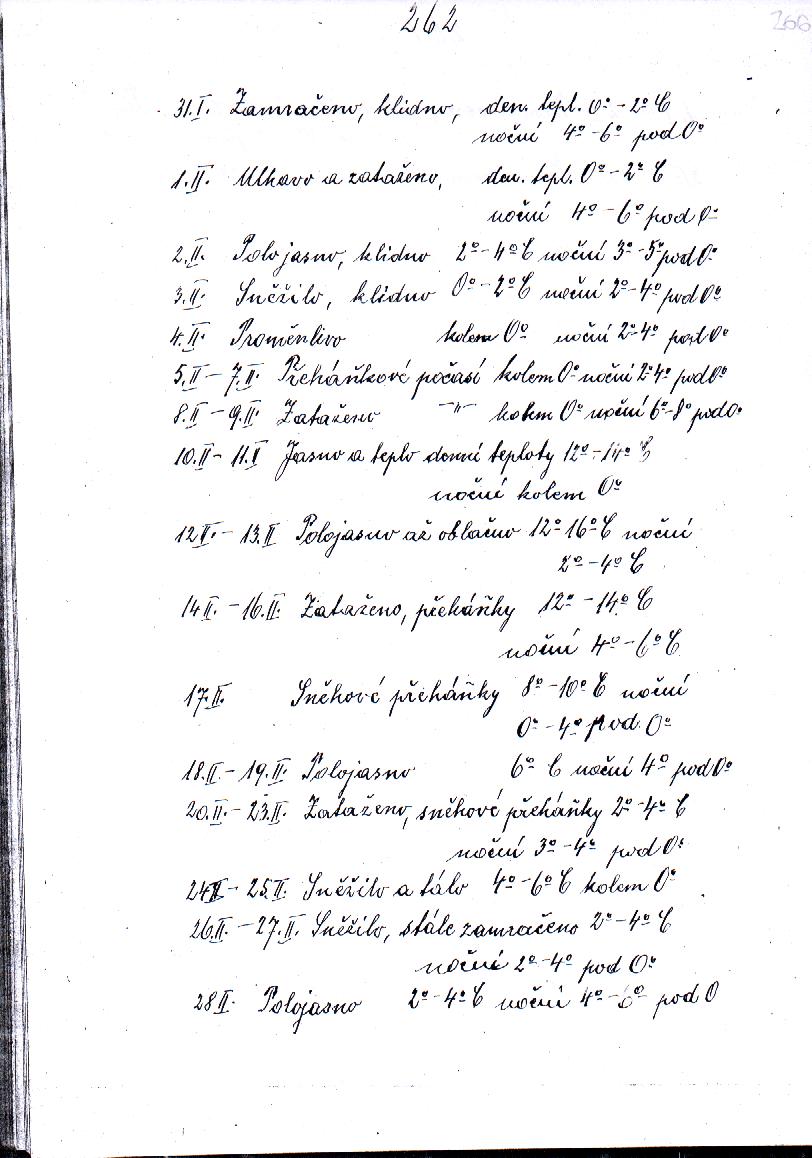 262
266
31.I. Zamračeno, klidno, den. tepl. 0° - 2° C
noční 4° - 6° pod 0°
1.II. Mlhavo a zataženo, den. tepl. 0° - 2° C
noční 4° - 6° pod 0°
2.II. Polojasno, klidno 2° - 4° C noční 3° - 5° pod 0°
3.II. Sněžilo, klidno 0° - 2° C noční 2° - 4° pod 0°
4.II. Proměnlivo kolem 0° noční 2° - 4° pod 0°
5.II - 7.II. Přeháňkové počasí kolem 0° noční 2° - 4° pod 0°
8.II - 9.II. Zataženo -"- kolem 0° noční 6° - 8° pod 0°
10.II - 11.II Jasno a teplo denní teploty 12° - 14° C
noční kolem 0°
12 II. - 13.II Polojasno až oblačno 12° 16° C noční
2° - 4° C
14 II. - 16.II. Zataženo, přeháňky 12° - 14° C
noční 4° - 6° C
17.II. Sněhové přeháňky 8° - 10° C noční
0° - 4° pod 0°
18.II. - 19.II. Polojasno 6° C noční 4° pod 0°
20.II. - 23.II. Zataženo, sněhové přeháňky 2° - 4° C
noční 3° - 4° pod 0°
24 II - 25.II. Sněžilo a tálo 4° - 6° C kolem 0°
26.II. - 27.II. Sněžilo, stále zamračeno 2° - 4° C
noční 2° - 4° pod 0°
28 II. Polojasno 2° - 4° C noční 4° - 6° pod 0